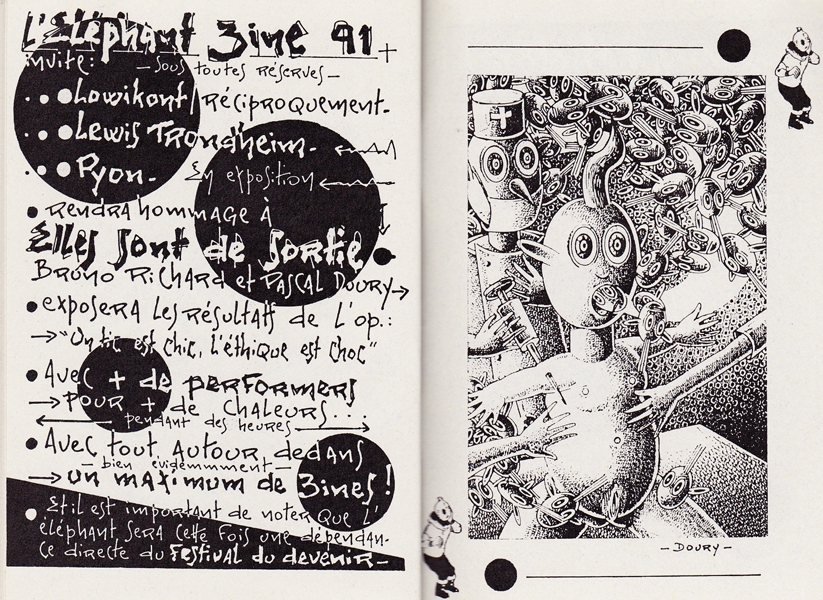 L'Éléphant Zine 91
invite: - sous toutes réserves -
• • ● Lowikont / réciproquement.
• • ● Lewis Trondheim.
• • ● Pyon. En exposition
● rendra hommage à
Elles sont de sortie
Bruno Richard et Pascal Doury
● exposera les résultats de l'op.:
→ "Un tic est chic, l'éthique est choc"
● Avec + de performers
→ pour + de chaleurs...
pendant des heures
● Avec tout autour, dedans
- bien évidemmment -
→ un maximum de zines!
● Et il est important de noter que l'
éléphant sera cette fois une dépendan-
ce directe du Festival du devenir -
- DOURY -